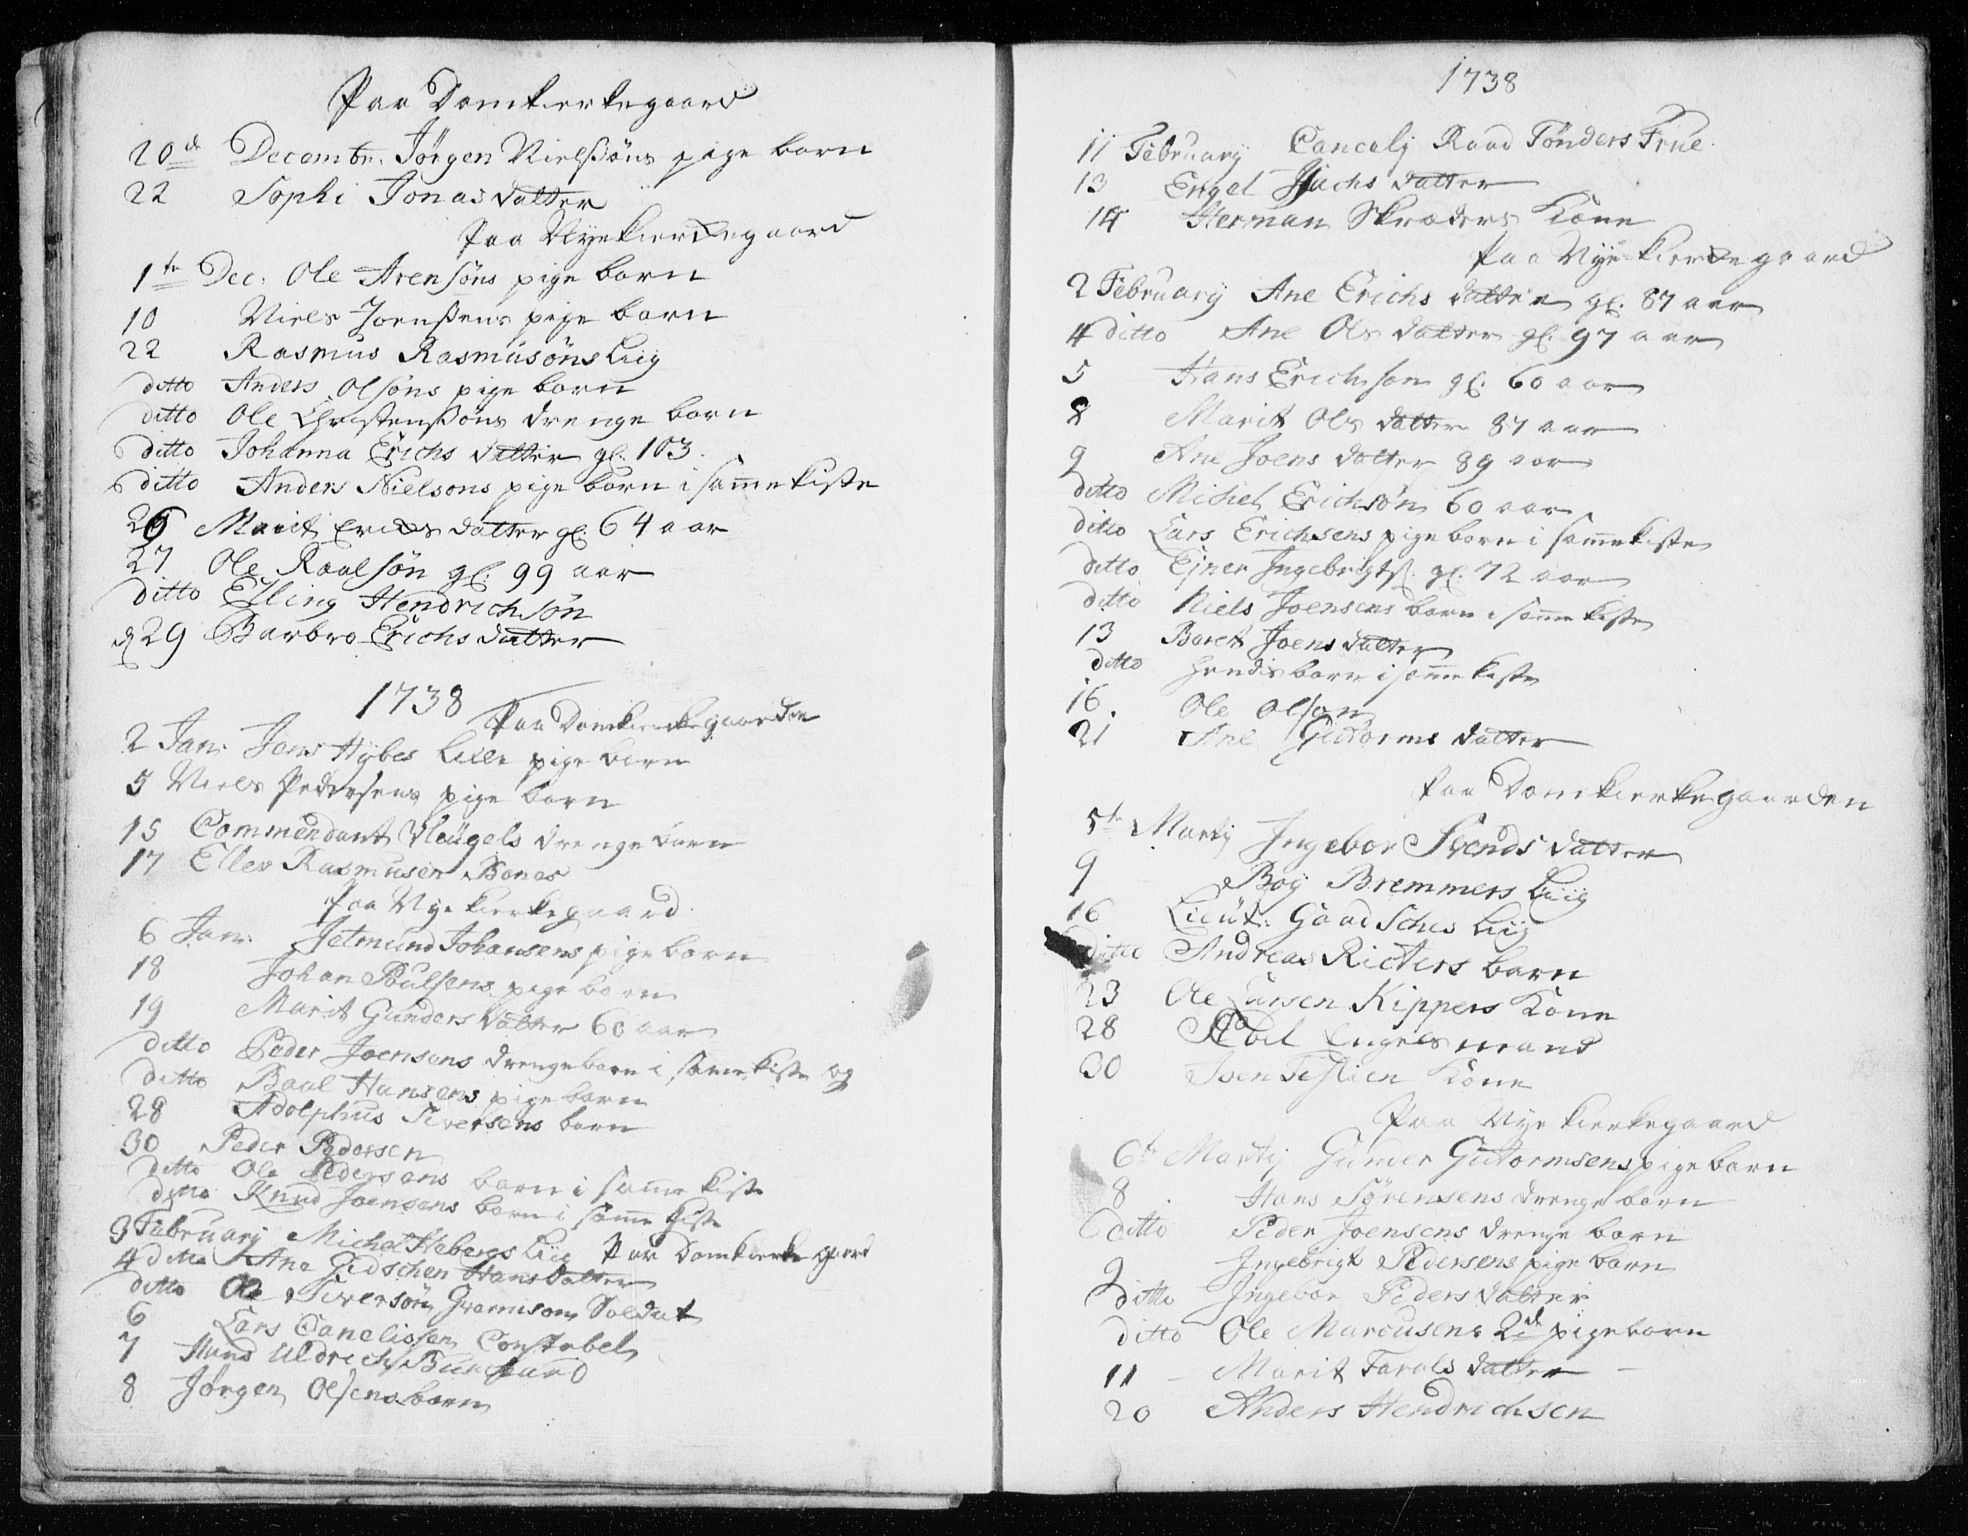 Paa Domkierkegaard
20d Decembr. Jørgen Nielsøns pige barn
22 Sophi Jonasdatter
Paa Nyekierkegaard
1te Dec: Ole Arensøns pige barn
10 Niels Joenssens pige barn
22 Rasmus Rasmusøns Liig
ditto Anders Olsøns pige barn
ditto Ole Christenssøns drenge barn
ditto Johanna Erichs datter gl. 103.
ditto Anders Nielsons pige barn i samme kiste
26 Marit Erichs datter gl. 64 aar
27 Ole Roalsøn gl. 99 aar
ditto Elling Hendrichsøn
d 29 Barbro Erichs datter
1738
Paa Domkierkegaarden
2 Jan: Jens Hybes Lille pige barn
5 Niels Pedersens pige barn
15 Commendant Vleügels drenge barn
17 Eller Rasmusen Bones
Paa Nye kierkegaard.
6 Jan: Jetmund Johansens pige barn
18 Johan Poulsens pige barn
19 Marit Gunders datter 60 aar
ditto Peder Joensens drengebarn i samme kiste og
ditto Baul Hansens pige barn
28 Adolphus Siversens barn
30 Peder Pedersen
ditto Ole Pedersens barn i samme kiste
ditto Knud Joensens barn i samme kiste
3 February Michel Hebergs Liig Paa Domkierke gaard
4 ditto Ane Gedschen Hans datter
ditto Ole Siversøn Guarnison Soldat
6 Lars Caneliosen Constabel
7 Hans Uldrich
8 Jørgen Olsens barn
1738
11 February Cancelj Raad Tønders Frue.
13 Engel datter
14 Herman Skrøders Kone
Paa Nye-kierkegaard
2 February Ane Erichs datter gl. 87 aar
4 ditto Ane Ols datter gl. 97 aar
5 Hans Erichson gl. 60 aar
8 Marit Ols datter 87 aar
9 Ane Joens datter 89 aar
ditto Michel Erichsøn 60 aar
ditto Lars Erichsens pige barn i samme kiste
ditto Ejner Ingebrigts. gl. 72 aar
ditto Niels Joensens barn i samme kiste
13 Baret Joens datter
ditto hendis barn i samme kiste
16. Ole Olson
21 Ane Gutorms datter
Paa Domkierkegaarden
5te Martij Ingebor Svends datter
9 Boy Bremmers Liig
16 Lieut: Gaadsches Liig
ditto Andreas Ricters barn
23 Ole Larsen Kippers Kone
28 Engelsmand
30 Sven Kone
Paa Nye kierkegaard
6te Martij Guner Gutormsens pige barn
8 Hans Sørensens drenge barn
ditto Peder Joensens drenge barn
9 Ingebrigt Pedersens pige barn
ditto Ingebor Peders datter
ditto Ole Marcusens 2de pigebarn
11 Marit Farols datter
20 Anders Hendrichsen